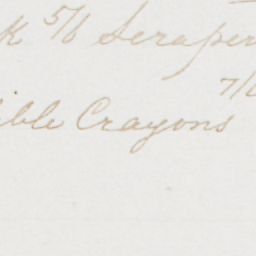 K 5/6 Scraper
ible Crayons 7/6